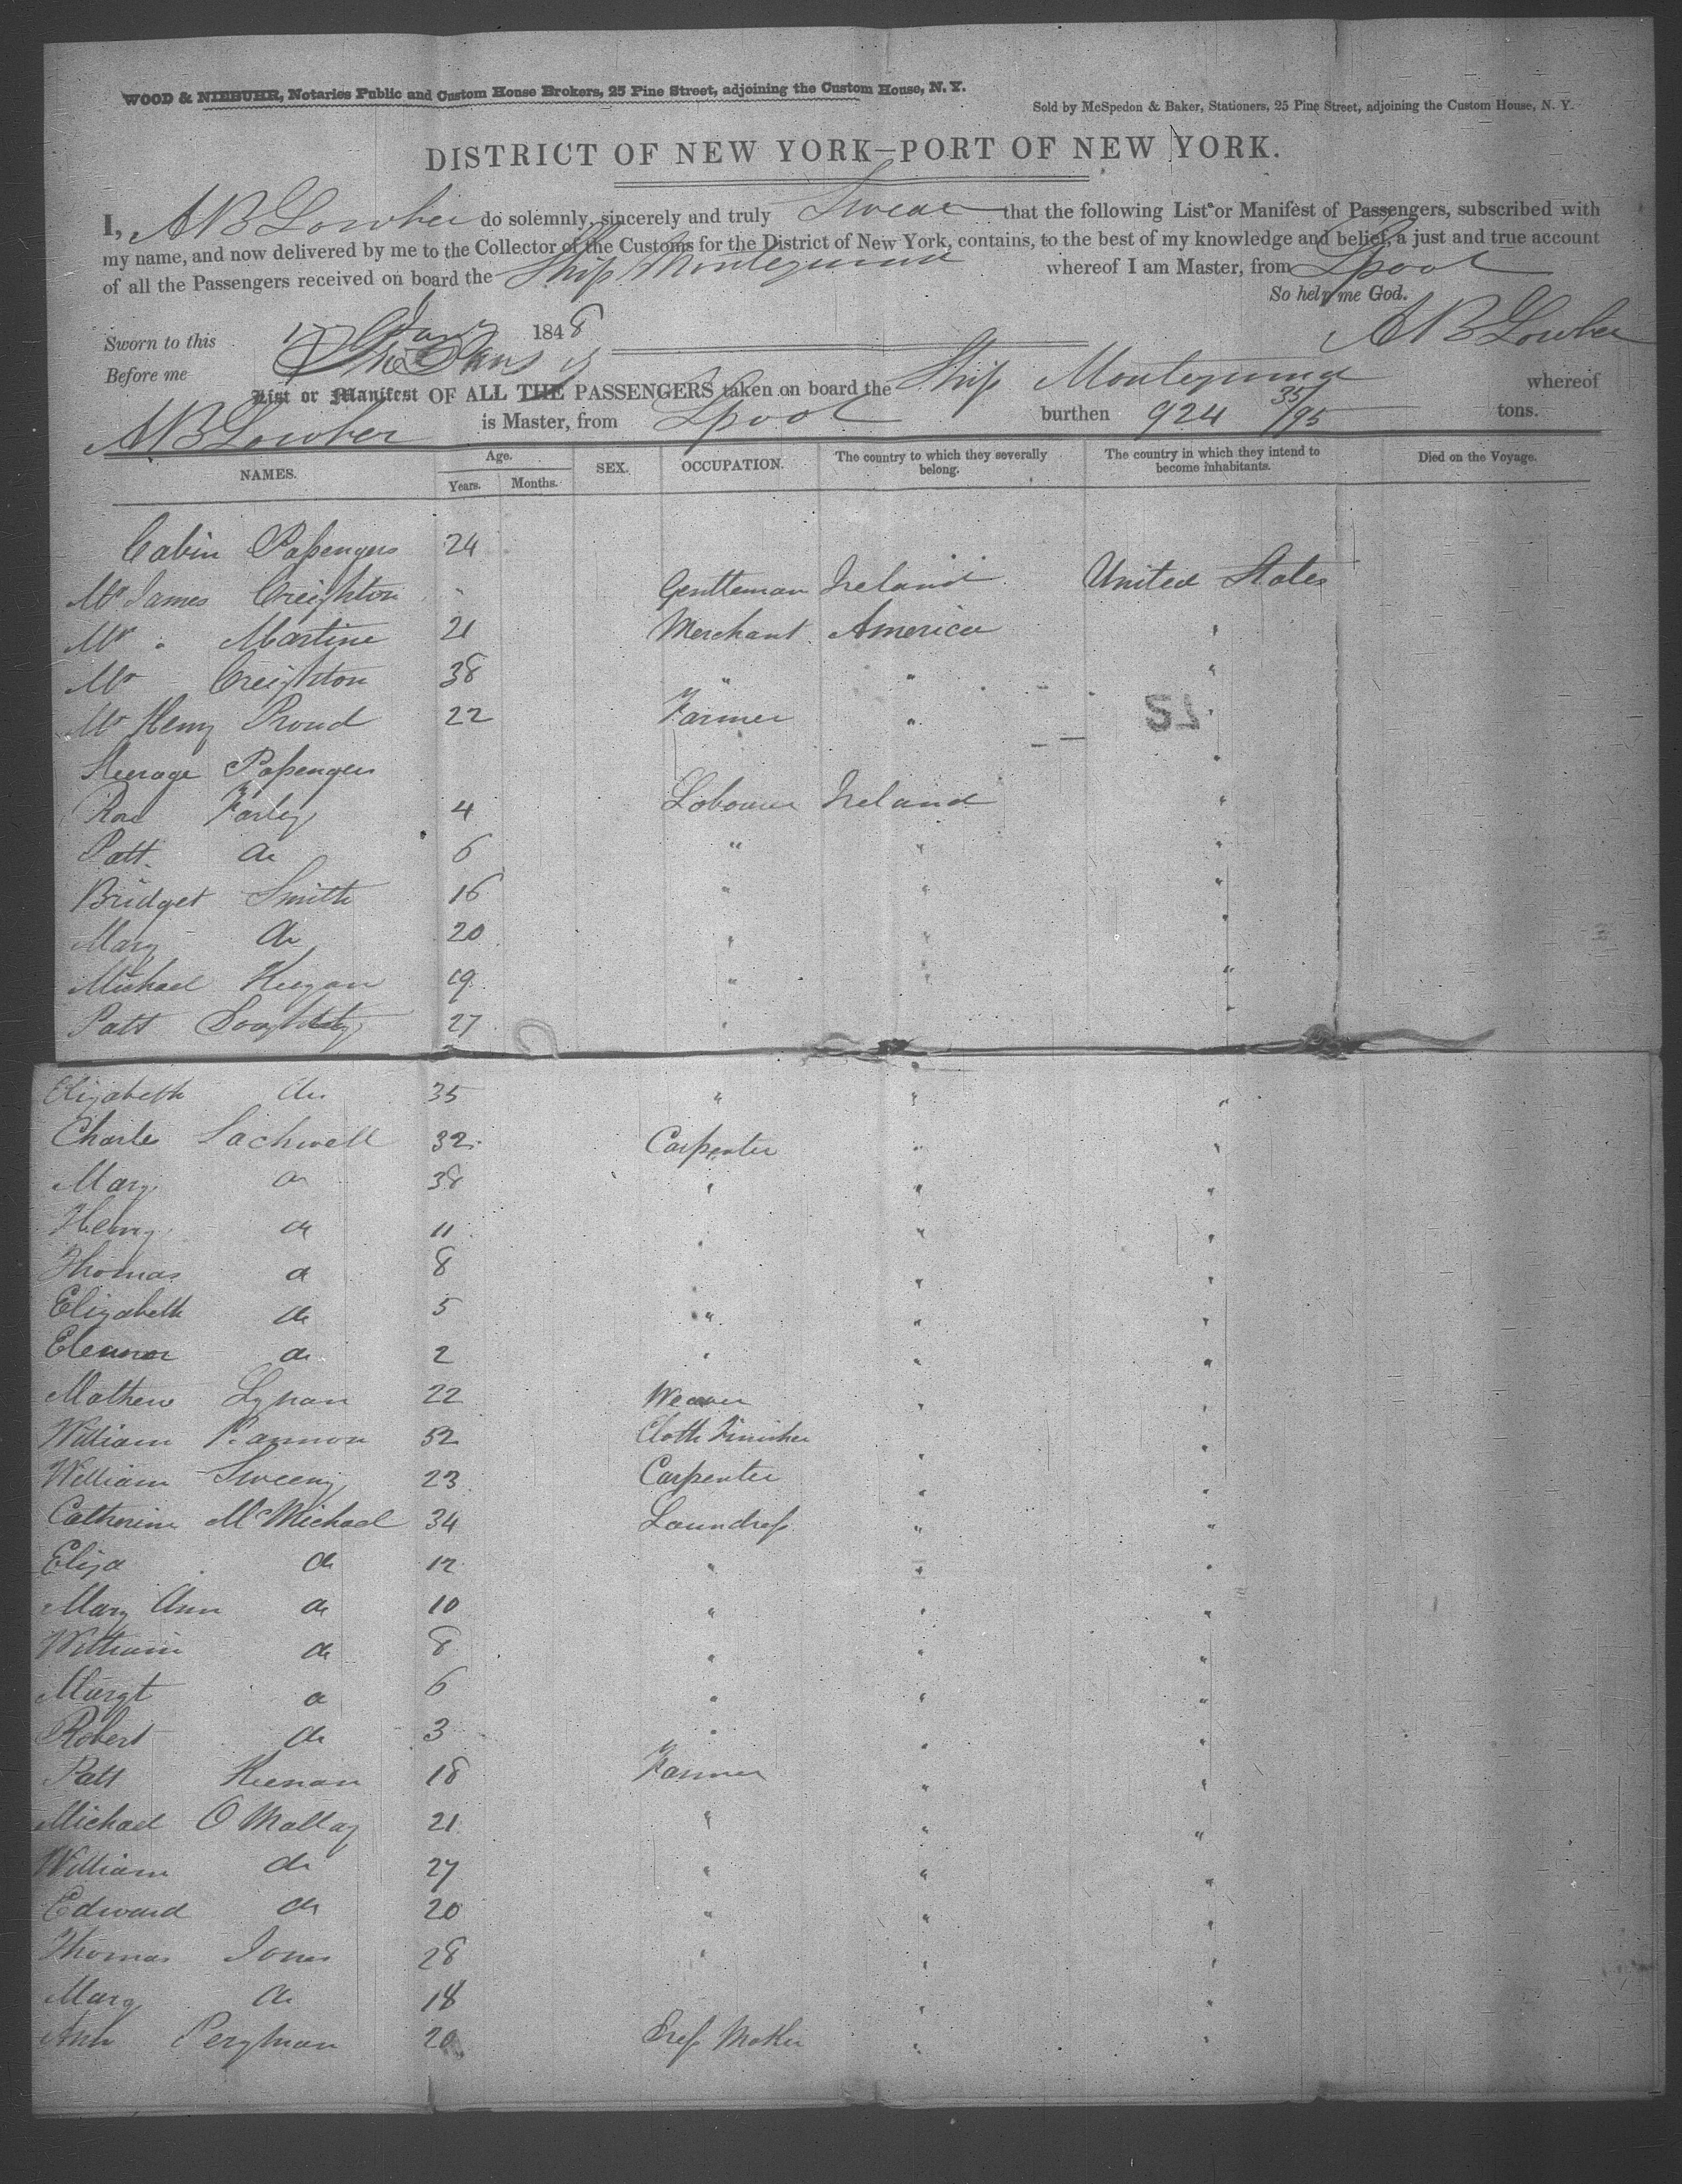 WOOD & NIEBUHR, Notaries Public and Custom House Brokers, 25 Pine Street, adjoining the Custom House, N. Y.
Sold by McSpedon & Baker, Stationers, 25 Pine Street, adjoining the Custom House, N. Y.
DISTRICT OF NEW YORK—PORT OF NEW YORK.
I, A B Lowber do solemnly, sincerely and truly Swear that the following List or Manifest of Passengers, subscribed with
my name, and now delivered by me to the Collector of the Customs for the District of New York, contains, to the best of my knowledge and belief, a just and true account
of all the Passengers received on board the Ship Montezuma whereof I am Master, from Lpool
So help me God.
Sworn to this 17 Jany 1848 A B Lowber
Before me
List or Manifest OF ALL THE PASSENGERS taken on board the Ship Montezuma whereof
A B Lowber is Master, from Lpool burthen 924 35/95 tons.
NAMES. Age. Years. Months. SEX. OCCUPATION. The country to which they severally belong. The country in which they intend to become inhabitants. Died on the Voyage.
Cabin Passengers 24
Mr James Creighton Gentleman Ireland United States
Mr Martine 21 Merchant America "
Mr Creighton 38 " " "
Mr Henry Proud 22 Farmer " "
Steerage Passengers "
Rose Farley 4 Labourer Ireland "
Patt do 6 " " "
Bridget Smith 16 " " "
Mary do 20 " " "
Michael Keegan 19 " " "
Patt 27 " "
Elizabeth do 35 " " "
Charle Sachwell 32 Carpenter " "
Mary do 38 " " "
Henry do 11 " " "
Thomas do 8 " "
Elizabeth do 5 " " "
Eleanor do 2 " " "
Mathew Lynan 22 Weaver " "
William 52 Cloth Finisher " "
William Sweeny 23 Carpenter " "
Catherine McMichael 34 Laundress " "
Eliza do 12 " " "
Mary Ann do 10 " " "
William do 8 " " "
Margt do 6 " " "
Robert do 3 " " "
Patt Keenan 18 Farmer " "
Michael O Mallay 21 " " "
William do 27 " " "
Edward do 20 " " "
Thomas Jones 28 " " "
Mary do 18 " "
Ann Pergman 20 Dress Maker " "